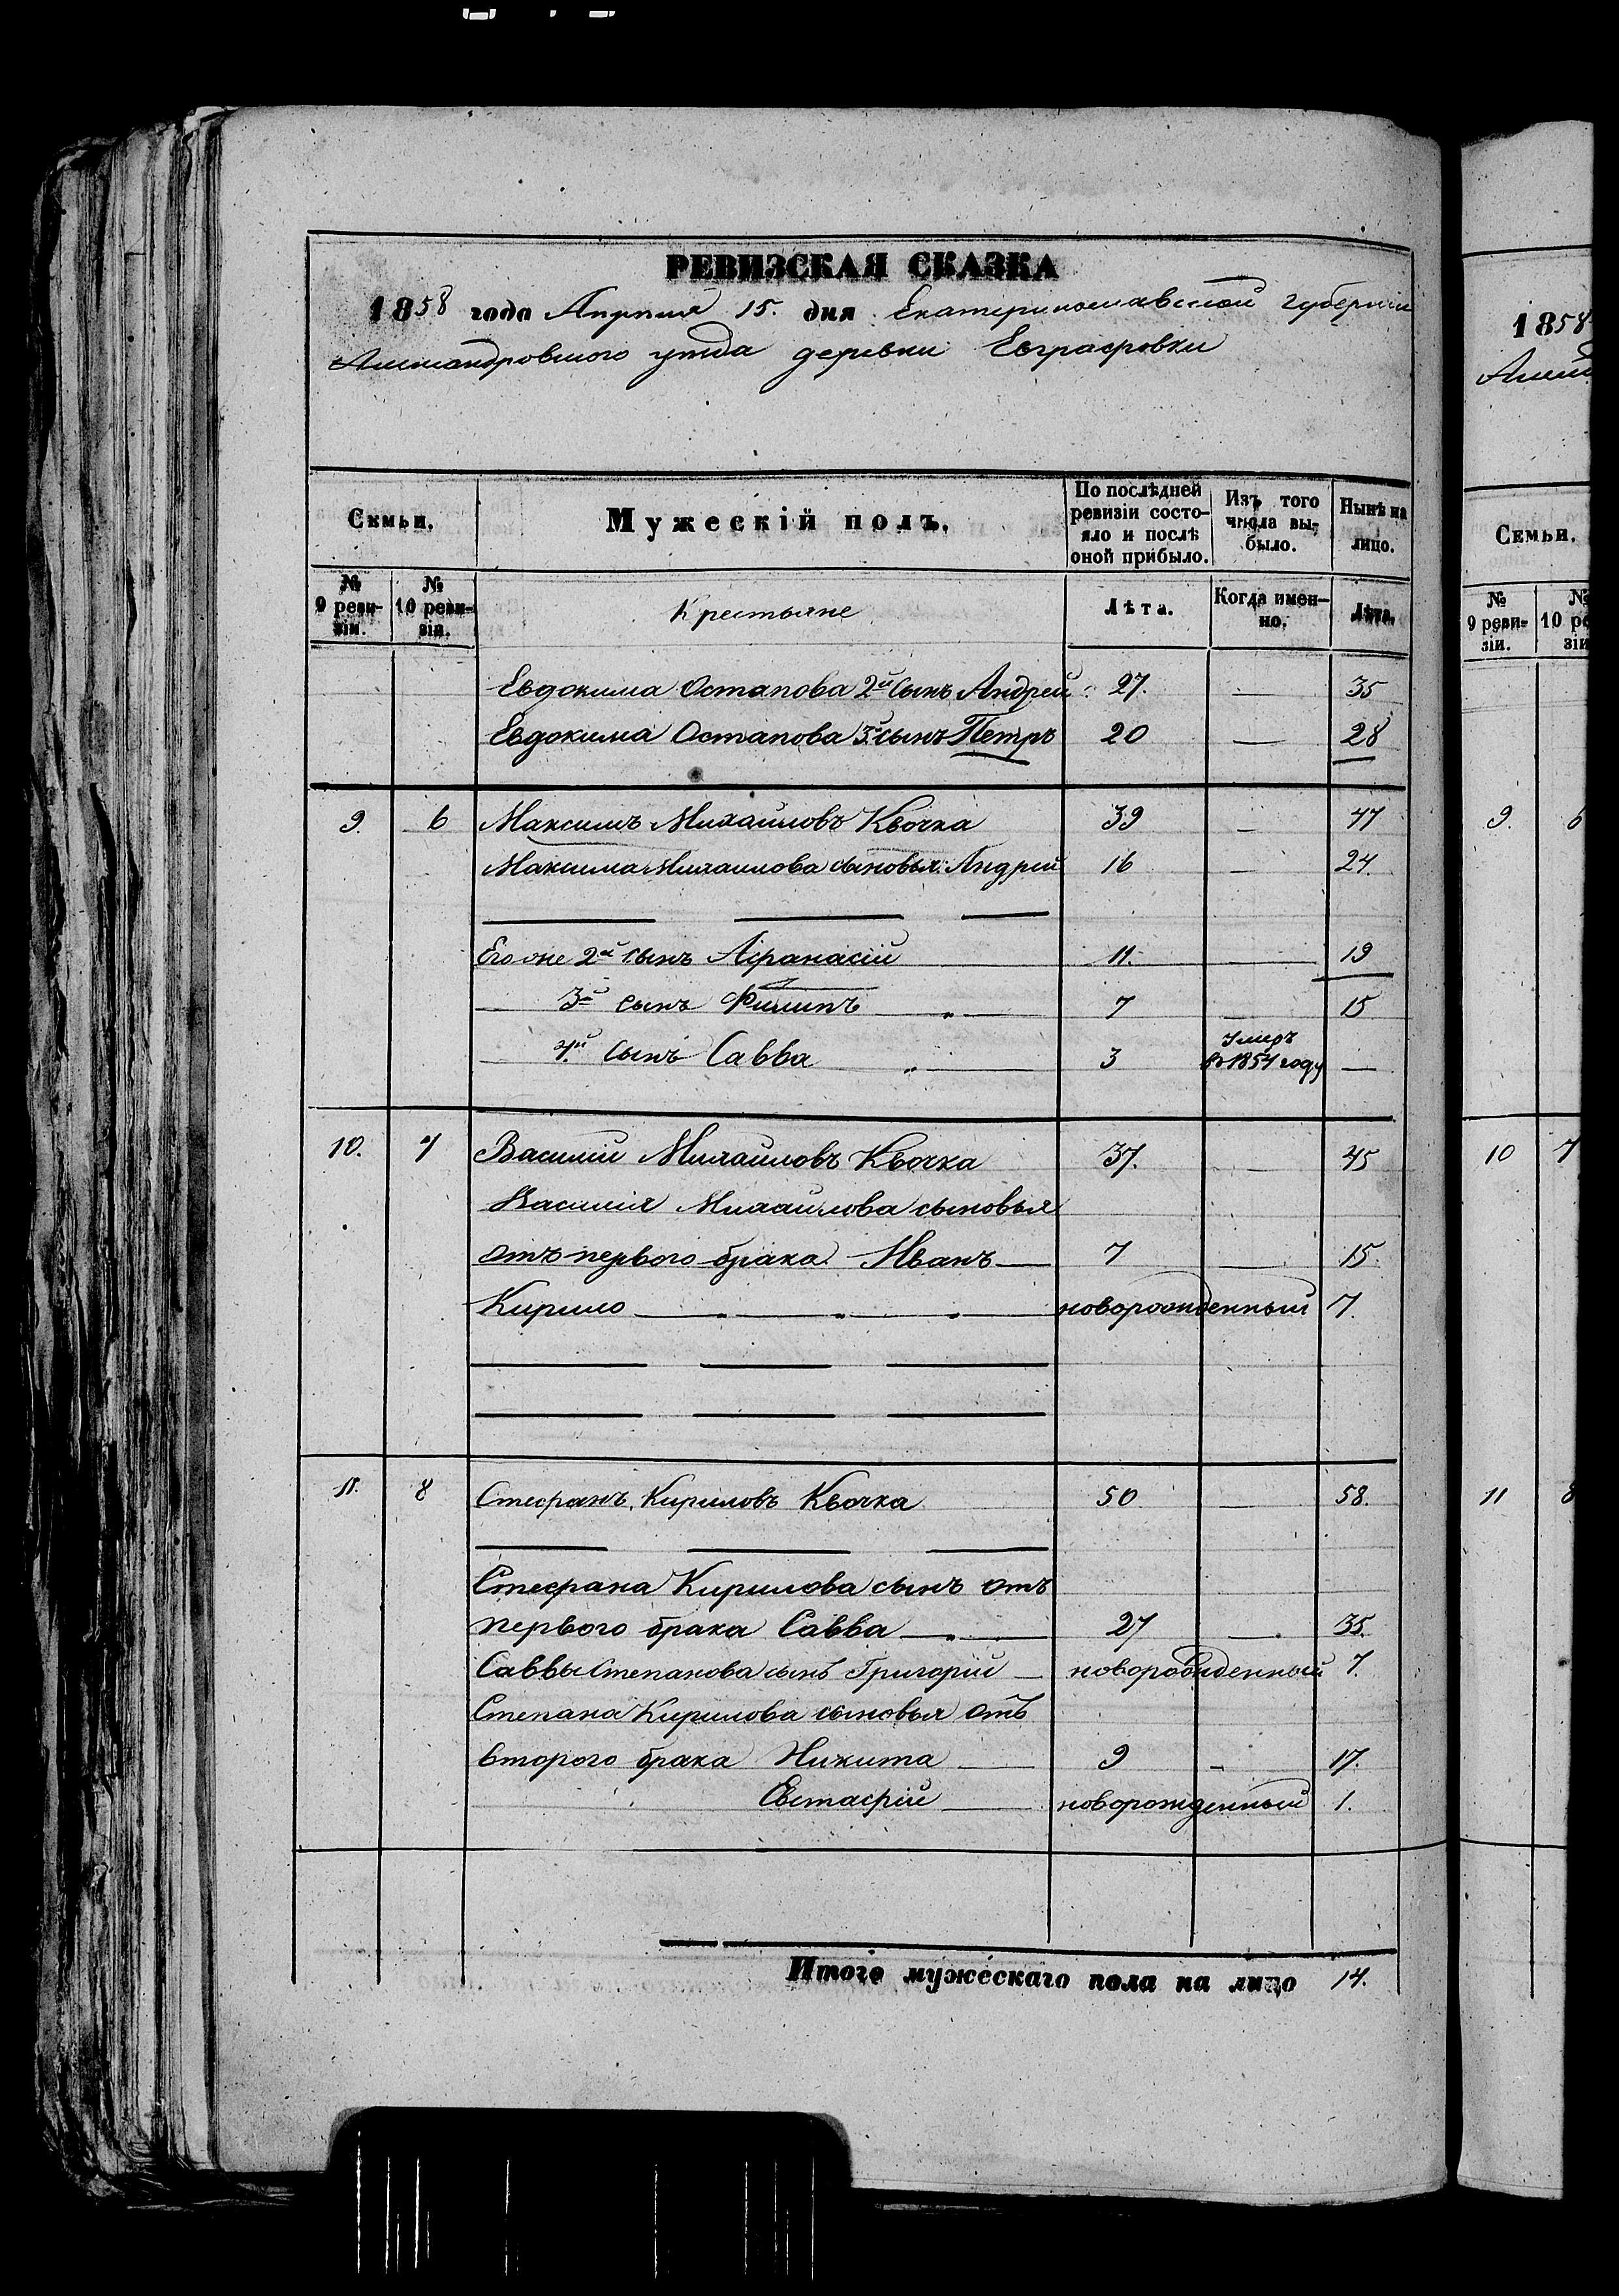 РЕВИЗСКАЯ СКАЗКА
1858 года Апреля 15. дня Екатеринославской губернiи
Александровского уезда деревни Евграфовки
Семьи. Мужескiй полъ. По послѣдней ревизiи состояло и послѣ оной прибыло. Изъ того числа выбыло. Нынѣ на лицо.
№ 9 ревизiи. № 10 ревизiи. Крестьяне Лѣта. Когда именно. Лѣта.
Евдокима Остапова 2й сынъ Андрей 27. — 35
Евдокима Остапова 3й сынъ Петръ 20 — 28
9. 6 Максимъ Михайловъ Квочка 39 — 47
Максима Михайлова сыновья: Андрей 16 — 24.
Его же 2й сынъ Афанасiй 11. — 19
3й сынъ Филипъ — „ — 7 — 15
4й сынъ Савва — „ — 3 умеръ въ 1854 году —
10. 7 Василий Михайловъ Квочка 37. — 45
Василия Михайлова сыновья
отъ первого брака Иванъ — 7 — 15.
Кирило — „ — „ — „ новорожденный 7.
11. 8 Стефанъ Кириловъ Квочка 50 — 58.
Стефана Кирилова сынъ отъ
первого брака Савва — „ — 27 — 35.
Саввы Степанова сынъ Григорiй — новорожденный 7.
Степана Кирилова сыновья отъ
второго брака Никита — 9 — 17.
Евстафiй — новорожденный 1.
Итого мужескаго пола на лицо 14.
1858
Алек
Семьи.
№ 9 ревизiи. №
9. 6
10 7
11 8